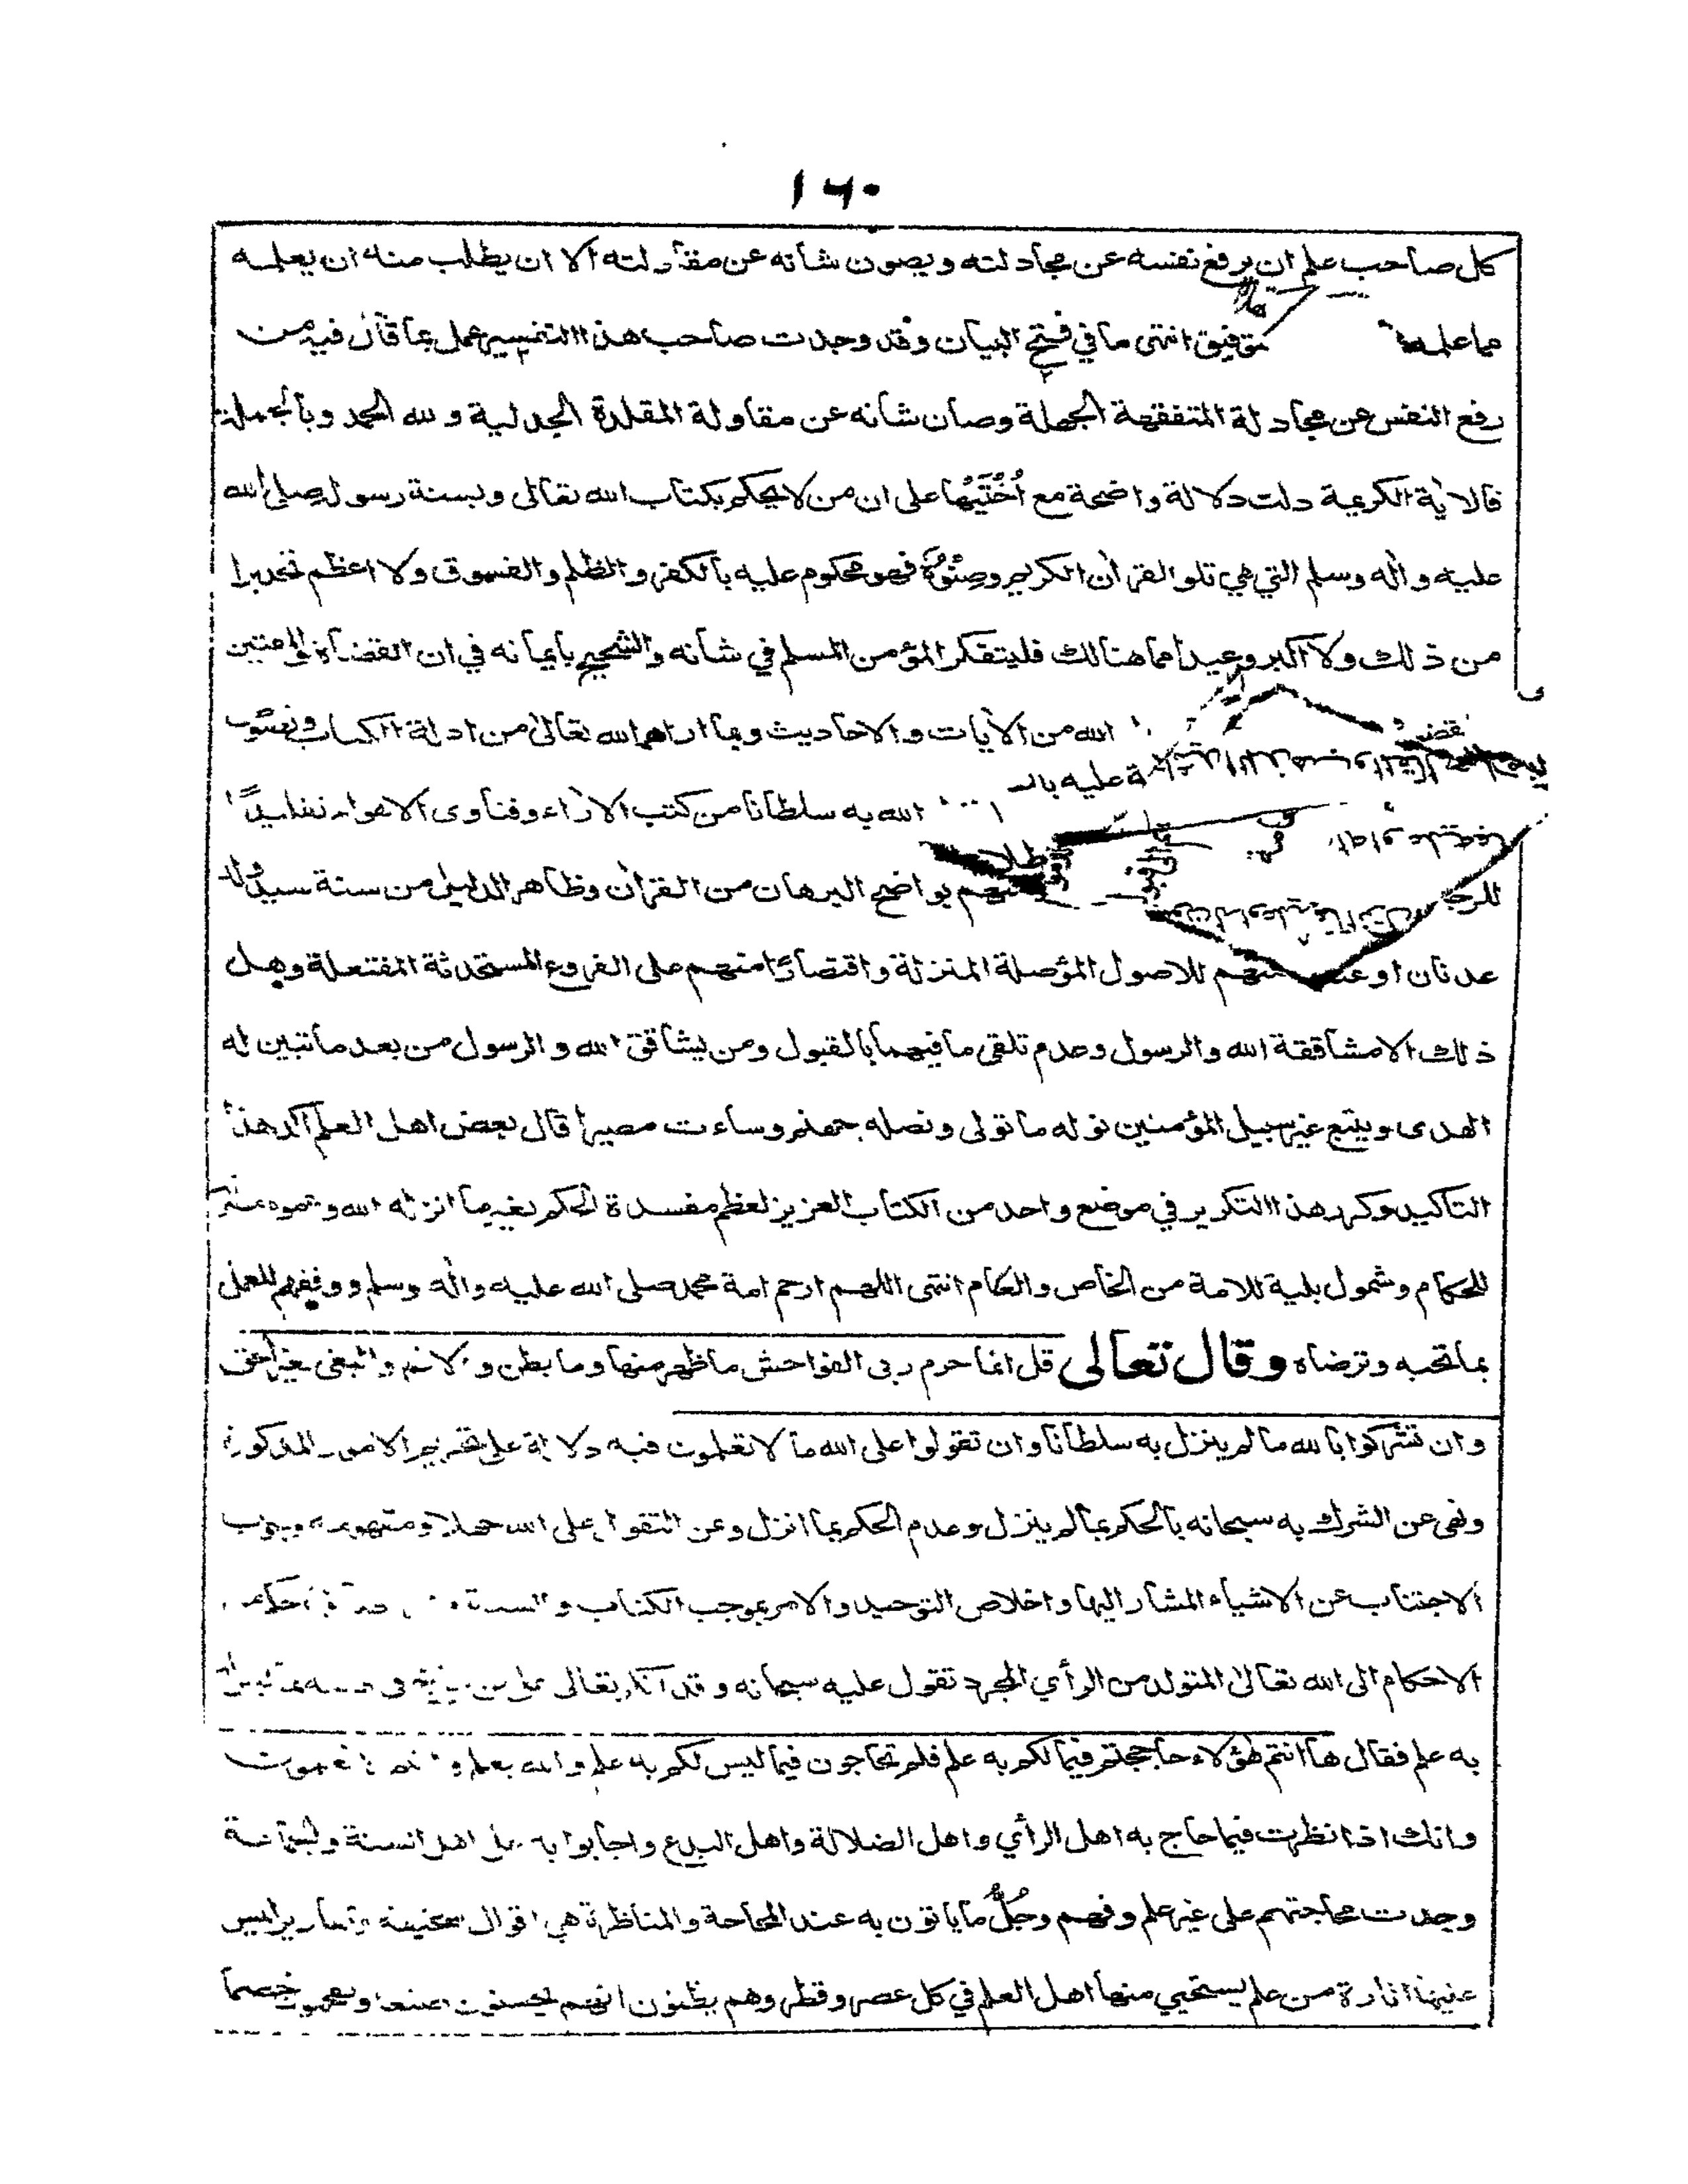 ١٦٠
كل صاحب علم ان يرفع نفسه عن مجادلته ويصون شانه عن مقاولته الا ان يطلب منه ان يعلمه
مما علمه توفيق انتهى ما في فتح البيان وقد وجدت صاحب هذا التفسير عمل بما قال فيه من
رفع النفس عن مجادلة المتفقهة الجهلة وصان شانه عن مقاولة المقلدة الجدلية ولله الحمد وبالجملة
فالاية الكريمة دلت دلالة واضحة مع أُخْتَيْها على ان من لا يحكم بكتاب الله تعالى وبسنة رسوله صلى الله
عليه واله وسلم التي هي تلو القران الكريم وصِنْوُهُ فهو محكوم عليه بالكفر والظلم والفسوق ولا اعظم تحذيرا
من ذلك ولا اكبر وعيدا مما هنالك فليتفكر المؤمن المسلم في شانه والشحيح بايمانه في ان القضاة والمفتين
الله من الأيات والاحاديث وبما اراهم الله تعالى من ادلة الكتاب
عليه الله به سلطانا من كتب الاراء وفتاوى الاهواء تقليدًا
للرجا بواضح البرهان من القران وظاهر الدليل من سنة سيد ولد
عدنان او منهم للاصول المؤصلة المنزلة واقتصارًا منهم على الفروع المستحدثة المفتعلة وهل
ذلك الا مشاققة الله والرسول وعدم تلقي ما فيهما بالقبول ومن يشاقق الله والرسول من بعد ما تبين له
الهدى ويتبع غير سبيل المؤمنين نوله ما تولى ونصله جهنم وساءت مصيرا قال بعض اهل العلم اكد هذا
التاكيد وكرر هذا التكرير في موضع واحد من الكتاب العزيز لعظم مفسدة الحكم بغير ما انزله الله
للحكام وشمول بلية للامة من الخاص والعام انتهى اللهم ارحم امة محمد صلى الله عليه واله وسلم ووفقهم للعمل
بما تحبه وترضاه وقال تعالى قل انما حرم ربي الفواحش ما ظهر منها وما بطن والاثم والبغي بغير الحق
وان تشركوا بالله ما لم ينزل به سلطانا وان تقولوا على الله ما لا تعلمون فيه دلالة على تحريم الامور المذكورة
ونهى عن الشرك به سبحانه بالحكم بما لم ينزل وعدم الحكم بما انزل وعن التقول على الله جهلا
الاجتناب عن الاشياء المشار اليها واخلاص التوحيد والامر بموجب الكتاب والسنة
الاحكام الى الله تعالى المتولد من الرأي المجرد تقول عليه سبحانه وقد انكر تعالى على من
به علم فقال ها انتم هؤلاء حاججتم فيما لكم به علم فلم تحاجون فيما ليس لكم به علم والله يعلم وانتم لا تعلمون
وانك اذا نظرت فيما حاج به اهل الرأي واهل الضلالة واهل البدع واجابوا به على اهل السنة والجماعة
وجدت محاجتهم على غير علم وفهم وجُلُّ ما ياتون به عند المحاجة والمناظرة هي اقوال سخيفة وتحارير ليس
عليها اثارة من علم يستحيي منها اهل العلم في كل عصر وقطر وهم يظنون انهم يحسنون صنعا